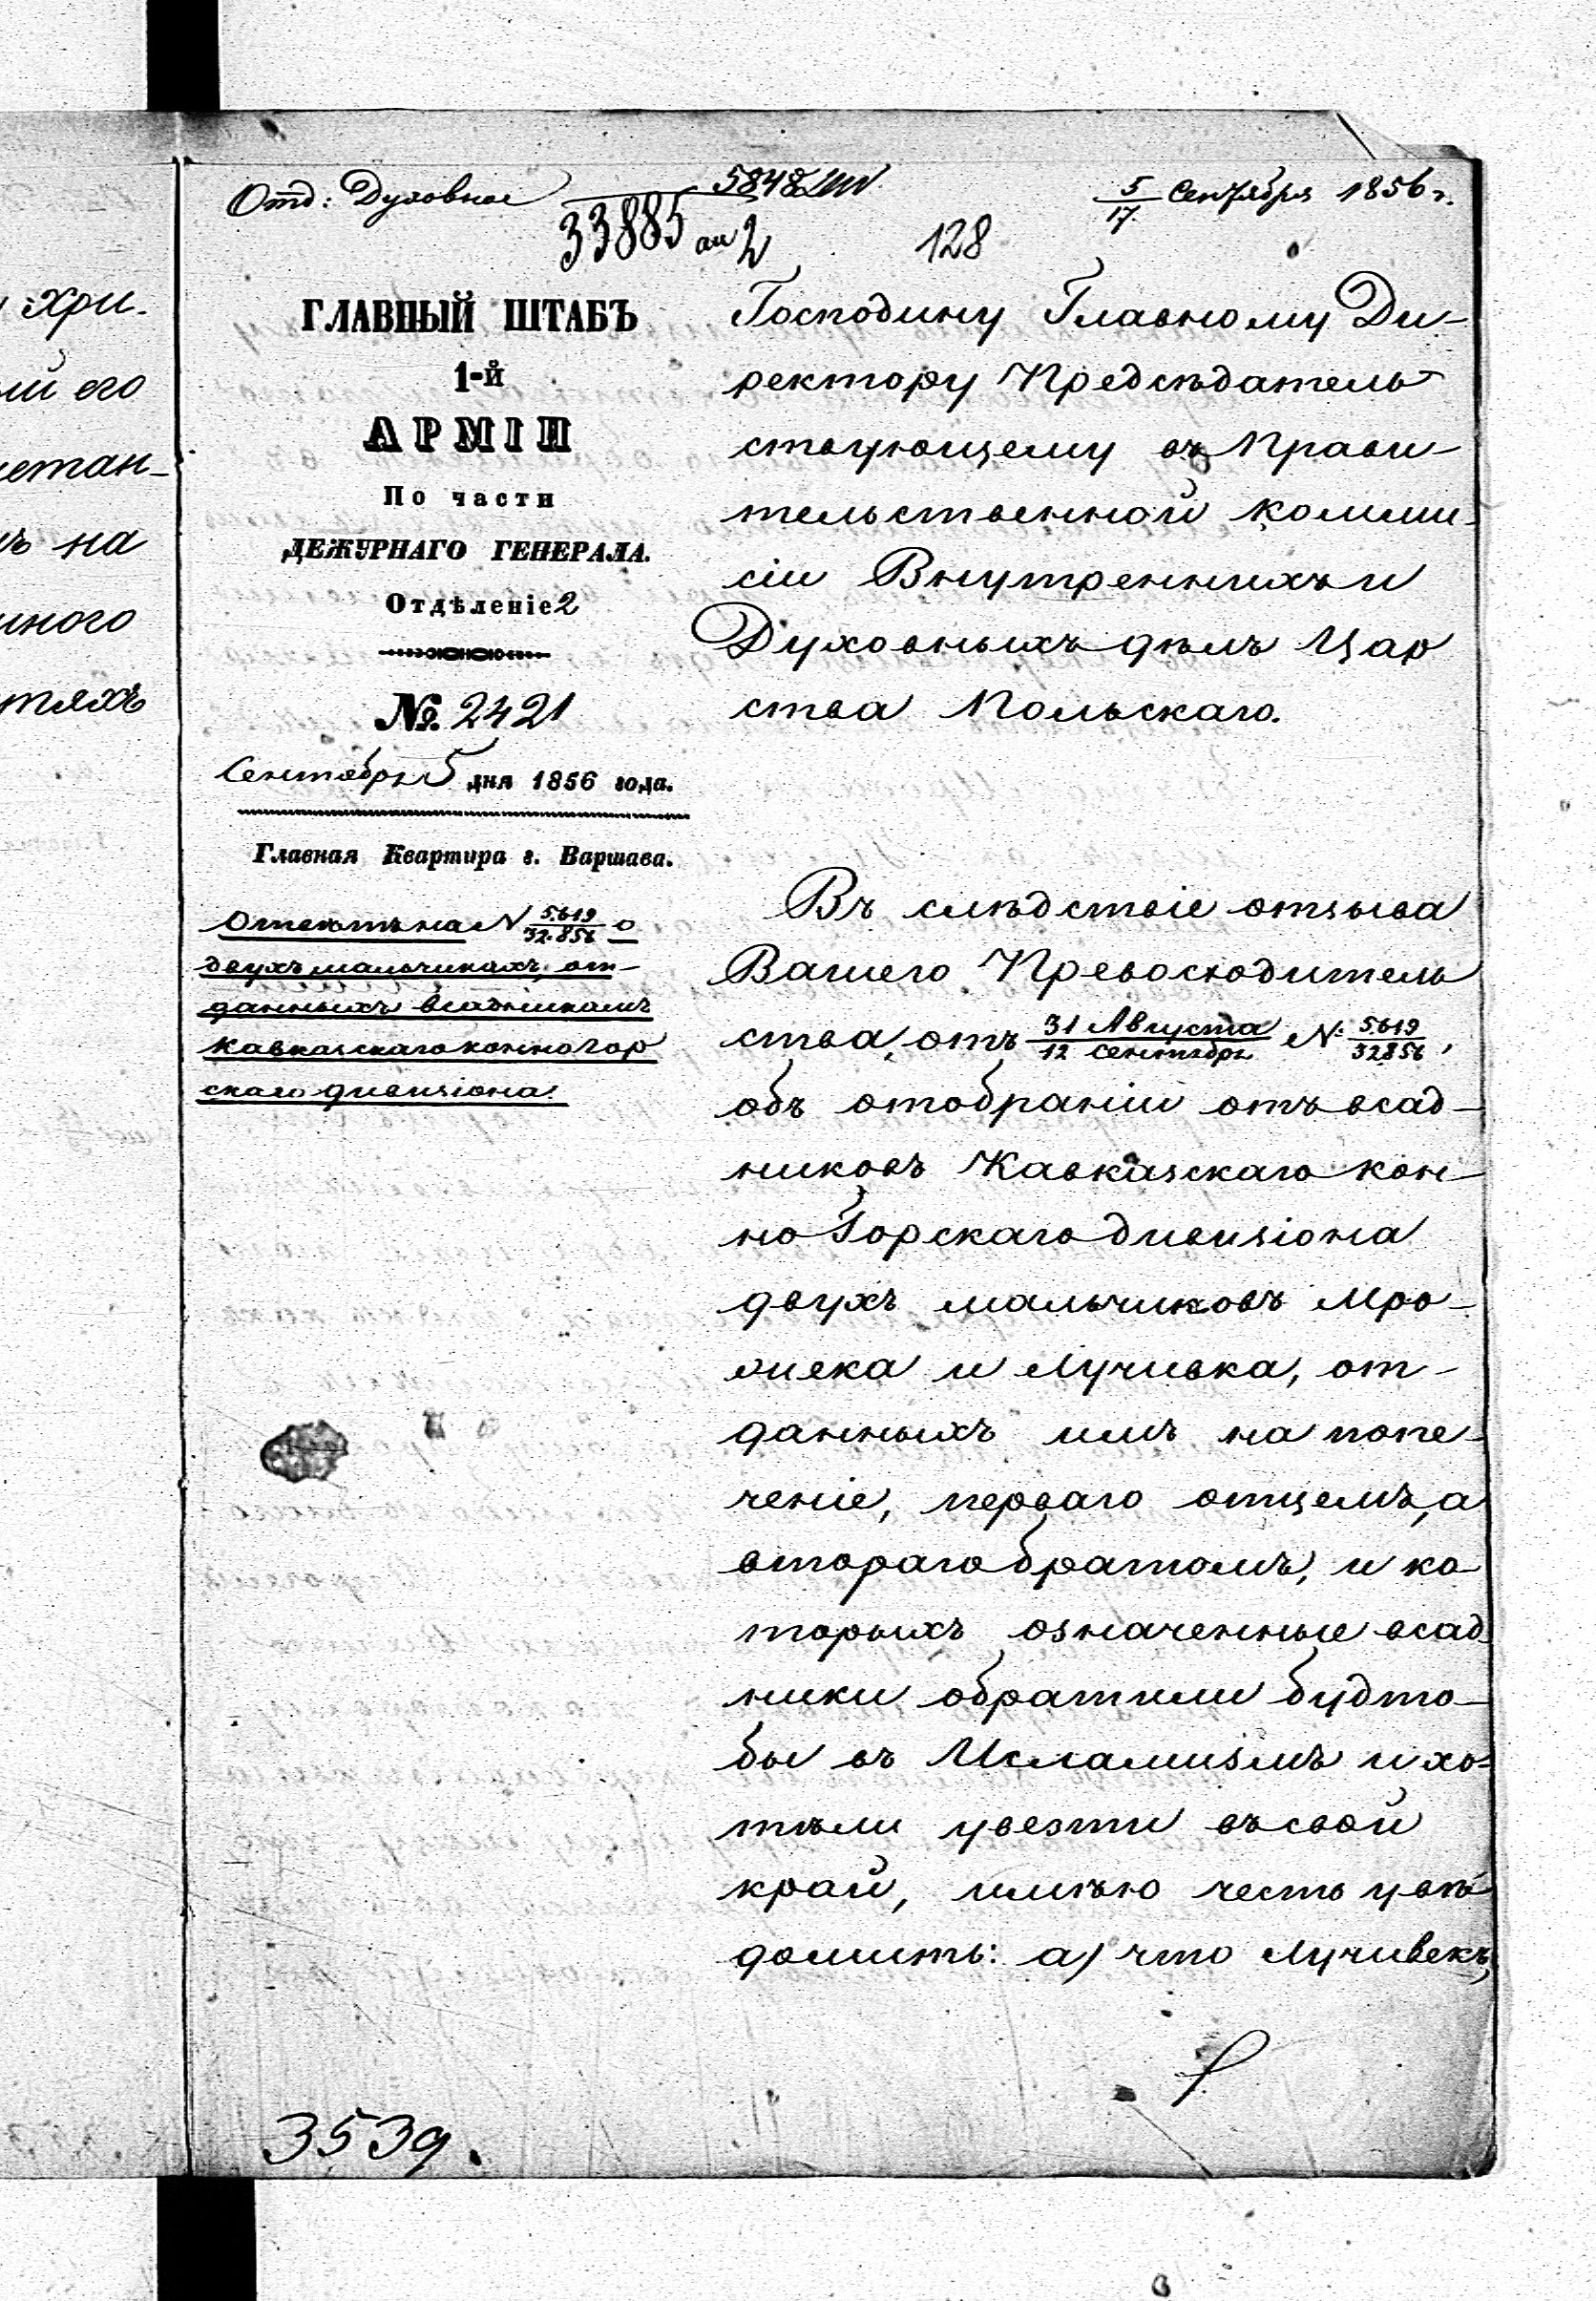 Отд: Духовное
5848
33885
2
128
5/17 Сентября 1856 г.
хри-
его
метан-
на
тяхъ
ГЛАВНЫЙ ШТАБЪ
1-й
АРМІИ
По части
ДЕЖУРНАГО ГЕНЕРАЛА.
Отдѣленіе 2
№ 2421
Сентября 5 дня 1856 года.
Главная Квартира г. Варшава.
Отвѣтъ на N 5619/32.856 о
двухъ мальчикахъ, от-
данныхъ всадникамъ
Кавказскаго конно Гор
скаго дивизіона.
Господину Главному Ди-
ректору Предсѣдатель
ствующему въ Прави-
тельственной коммі-
сіи Внутреннихъ и
Духовныхъ дѣлъ Цар
ства Польскаго.
Въ слѣдствіе отзыва
Вашего Превосходитель
ства, отъ 31 Августа/12 Сентября N. 5619/32856,
объ отобраніи отъ всад-
никовъ Кавказскаго кон-
но Горскаго дивизіона
двухъ мальчиковъ Мро-
и Лучивка, от-
данныхъ имъ на попе-
ченіе, перваго отцемъ, а
втораго братомъ, и ко
торыхъ означенные всад
ники обратили будто-
бы въ Исламизмъ и хо-
тѣли увезти въ свой
край, имѣю честь увѣ
домить: а) что Лучивекъ,
3539.